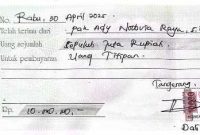 No. Rabu, 30 April 2025
Telah terima dari pak Ady Notbura Raya, S.
Uang sejumlah Sepuluh Juta Rupiah
Untuk pembayaran Uang Titipan
Tangerang,
Rp. 10.000.00,-